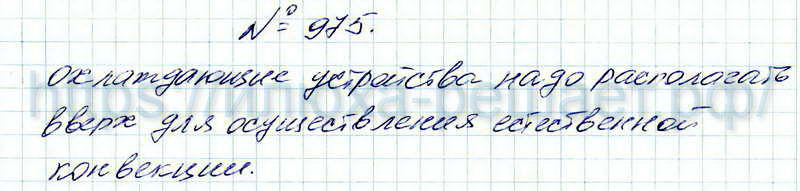 № 975.
охлаждающие устройства надо располагать
вверх для осуществления естественной
конвекции.